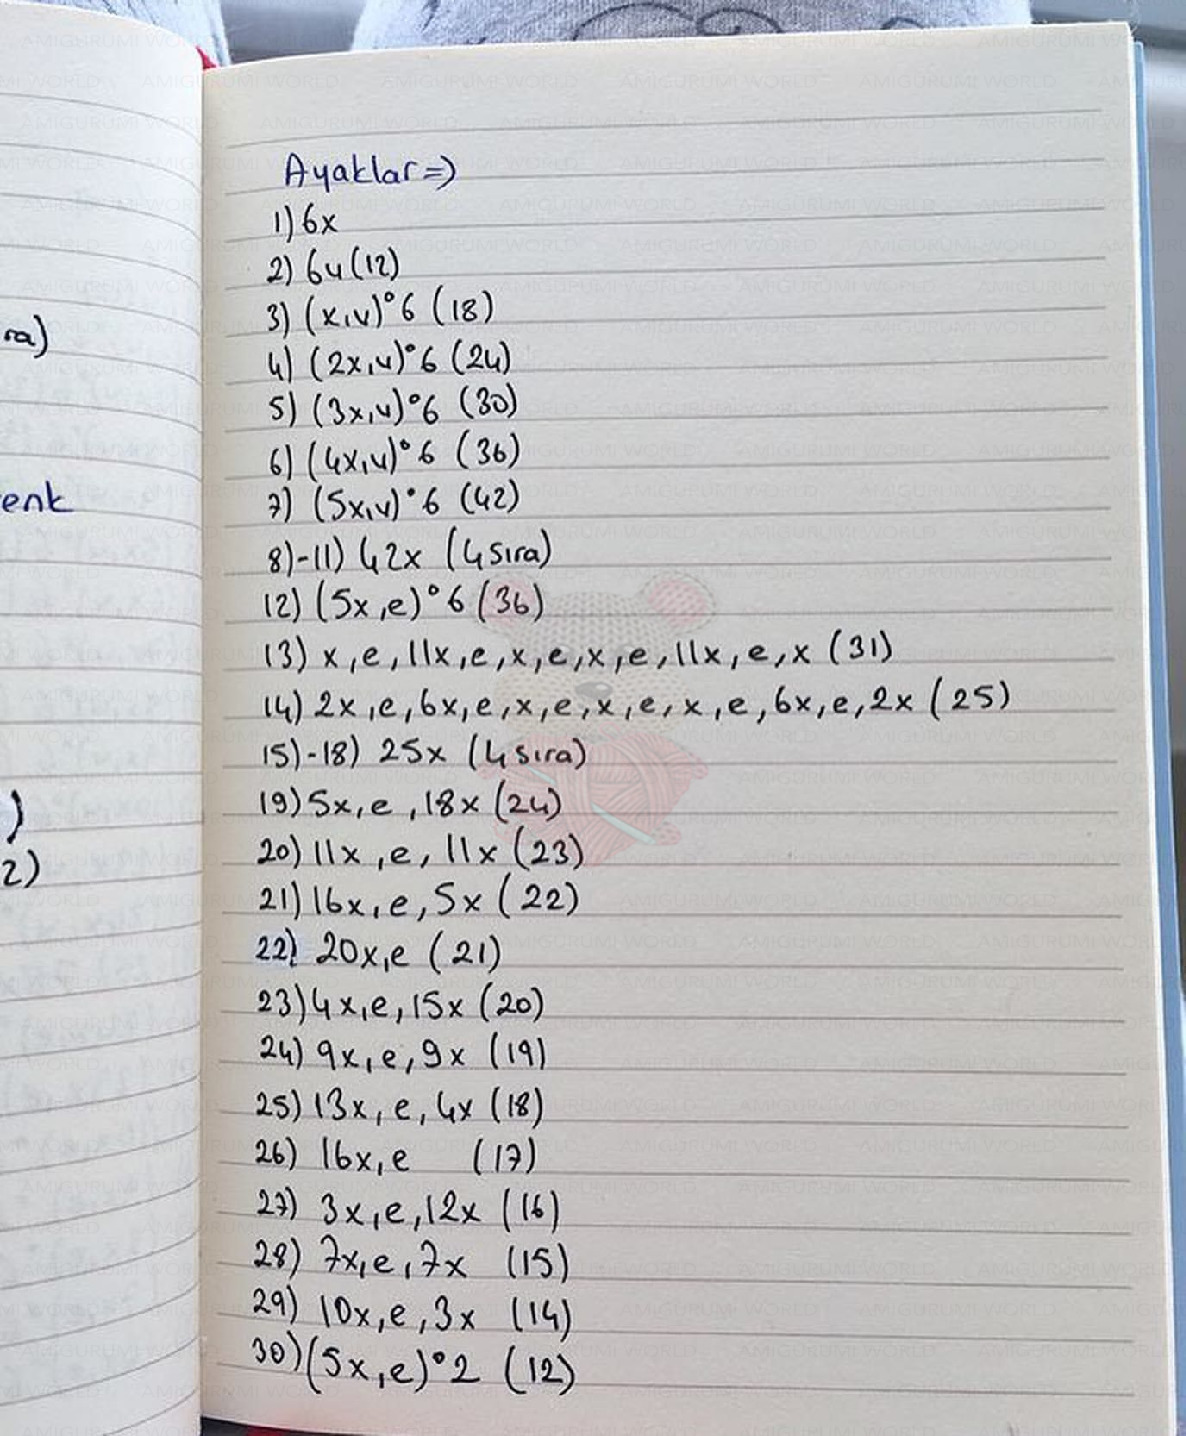 Ayaklar =>
1) 6x
2) 6v (12)
3) (x,v)°6 (18)
4) (2x,v)°6 (24)
5) (3x,v)°6 (30)
6) (4x,v)°6 (36)
7) (5x,v)°6 (42)
8)-11) 42x (4 sıra)
12) (5x,e)°6 (36)
13) x,e,11x,e,x,e,x,e,11x,e,x (31)
14) 2x,e,6x,e,x,e,x,e,x,e,6x,e,2x (25)
15)-18) 25x (4 sıra)
19) 5x,e,18x (24)
20) 11x,e,11x (23)
21) 16x,e,5x (22)
22) 20x,e (21)
23) 4x,e,15x (20)
24) 9x,e,9x (19)
25) 13x,e,4x (18)
26) 16x,e (17)
27) 3x,e,12x (16)
28) 7x,e,7x (15)
29) 10x,e,3x (14)
30) (5x,e)°2 (12)
ra)
enk
)
2)
AMIGURUMI WORLD